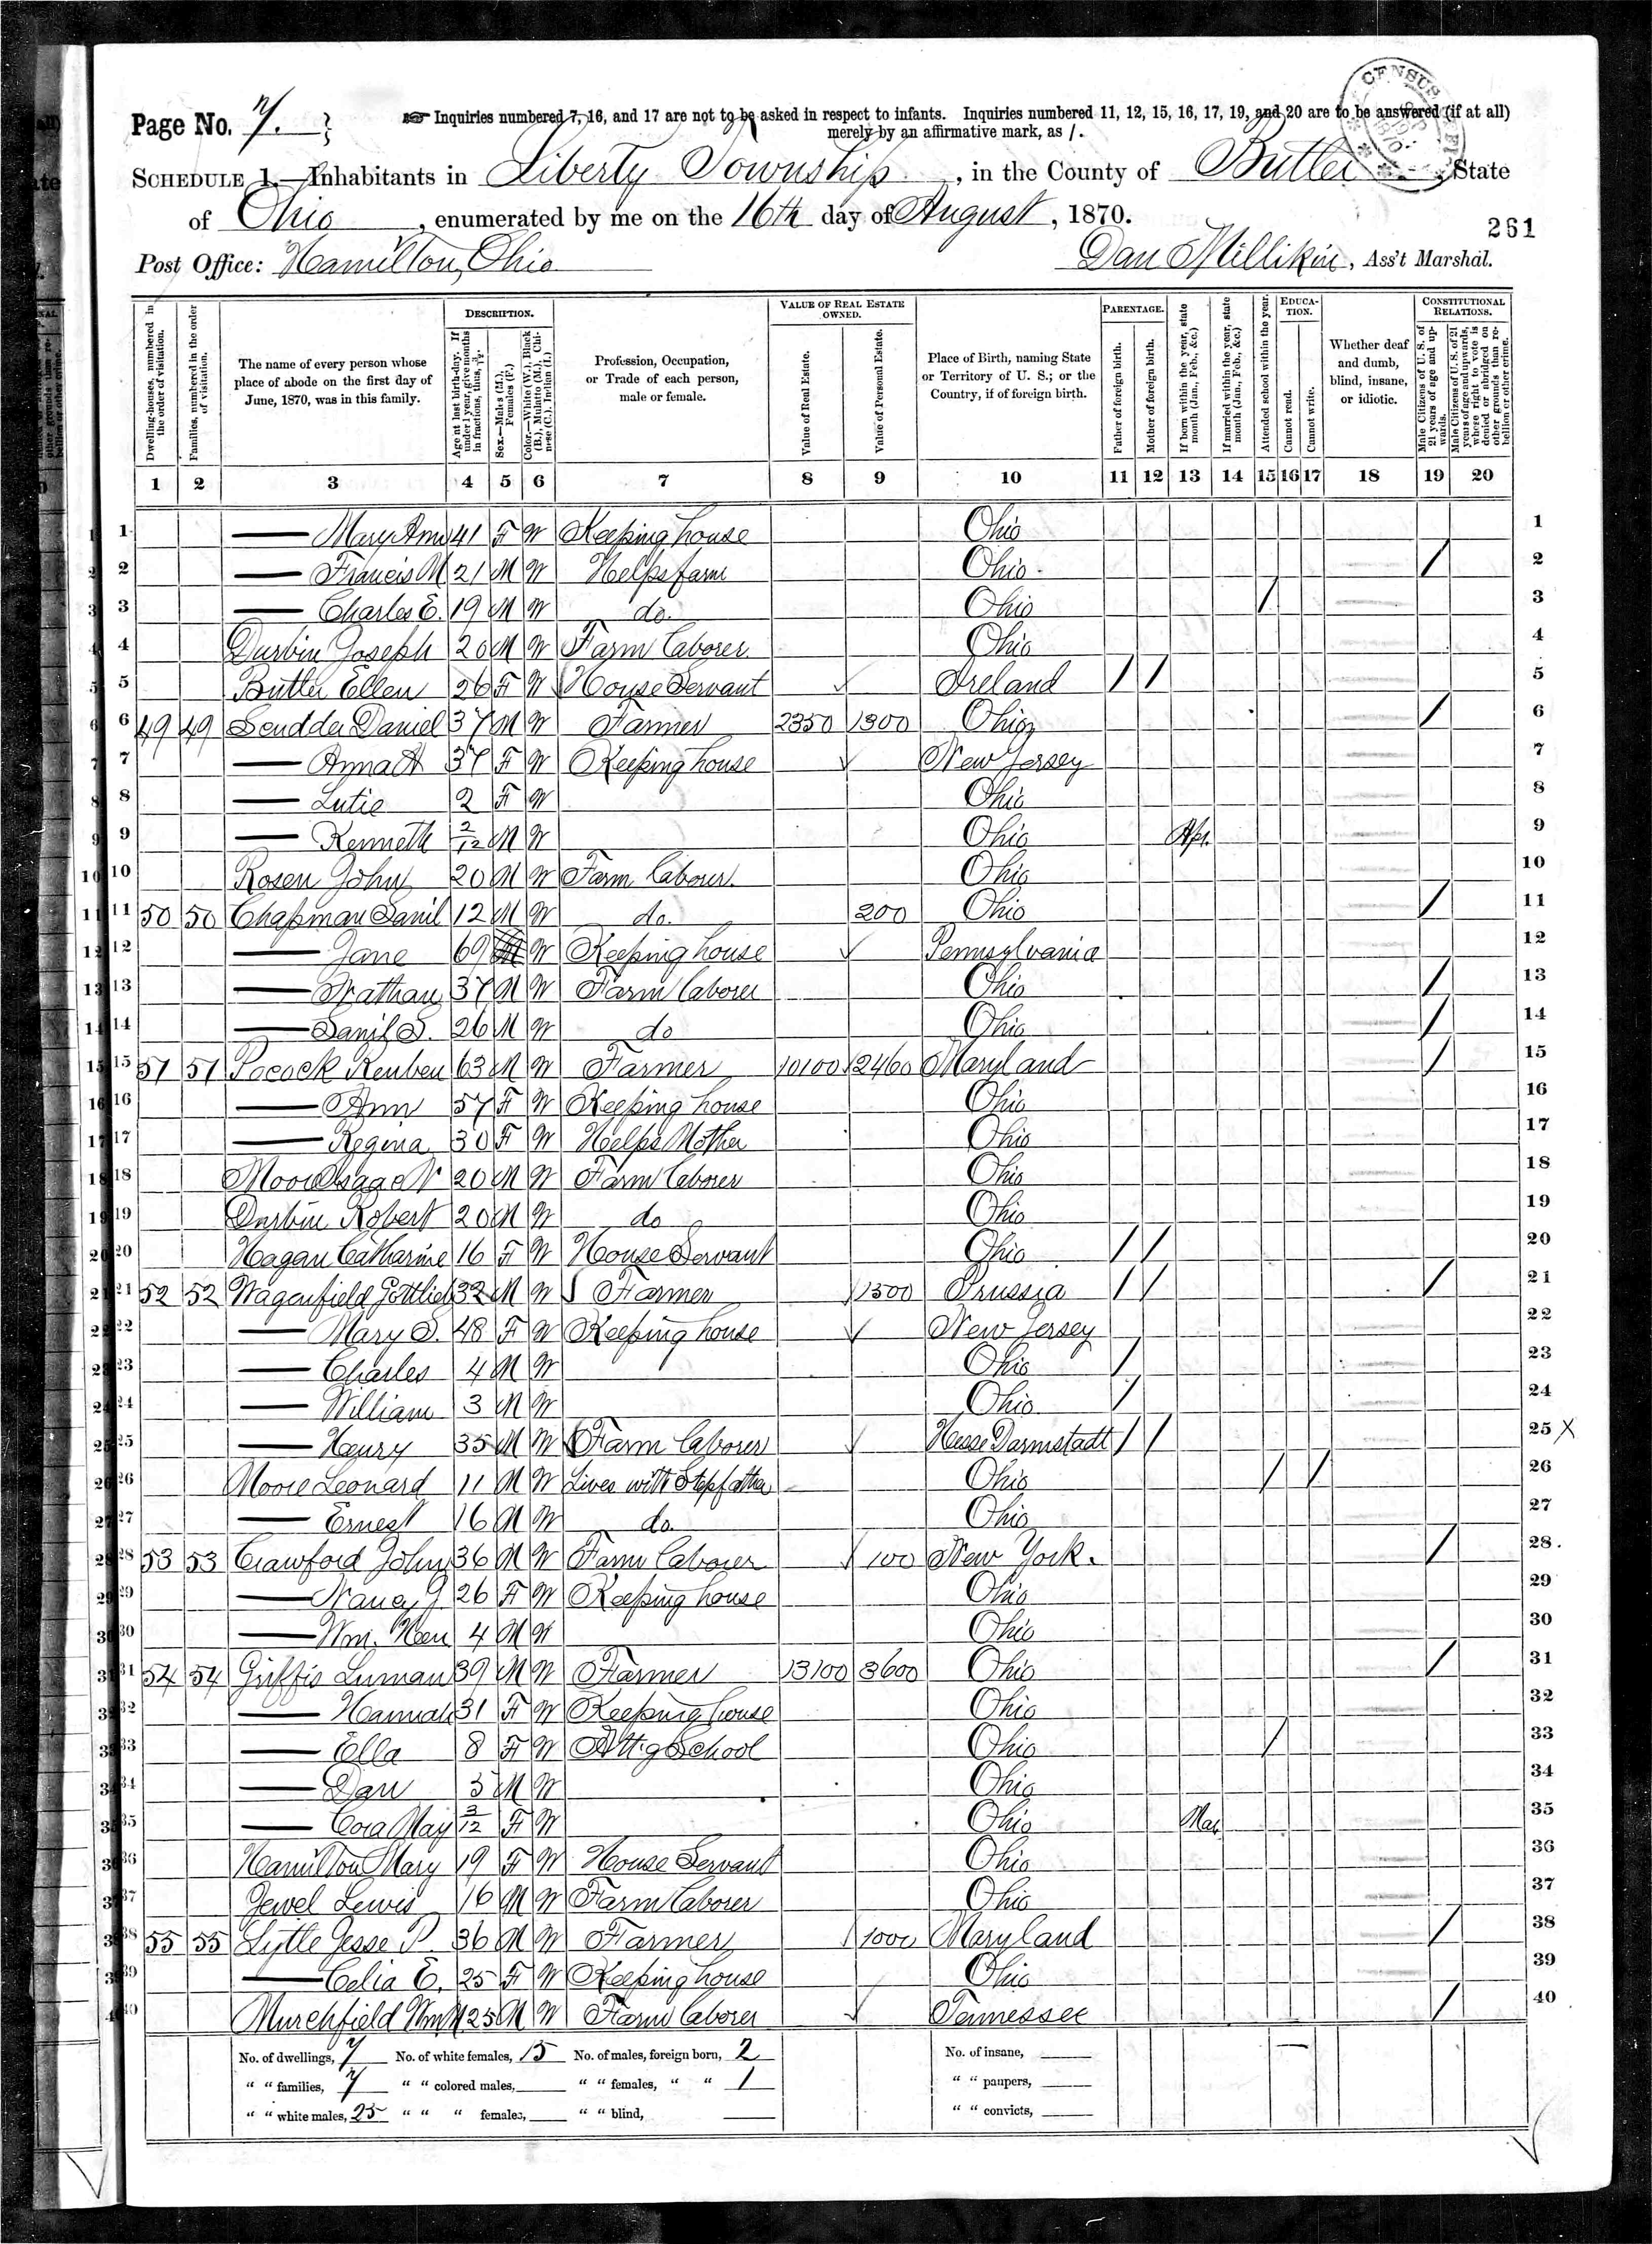 Page No. 7.
Inquiries numbered 7, 16, and 17 are not to be asked in respect to infants. Inquiries numbered 11, 12, 15, 16, 17, 19, and 20 are to be answered (if at all)
merely by an affirmative mark, as /.
SCHEDULE 1.—Inhabitants in Liberty Township, in the County of Butler, State
of Ohio, enumerated by me on the 16th day of August, 1870.
261
Post Office: Hamilton, Ohio
Dan Millikin, Ass't Marshal.
CENSUS
Dwelling-houses, numbered in the order of visitation.
Families, numbered in the order of visitation.
The name of every person whose place of abode on the first day of June, 1870, was in this family.
DESCRIPTION.
Age at last birth-day. If under 1 year, give months in fractions, thus, 3/12.
Sex.—Males (M.), Females (F.)
Color.—White (W.), Black (B.), Mulatto (M.), Chinese (C.), Indian (I.)
Profession, Occupation, or Trade of each person, male or female.
VALUE OF REAL ESTATE OWNED.
Value of Real Estate.
Value of Personal Estate.
Place of Birth, naming State or Territory of U. S.; or the Country, if of foreign birth.
PARENTAGE.
Father of foreign birth.
Mother of foreign birth.
If born within the year, state month (Jan., Feb., &c.)
If married within the year, state month (Jan., Feb., &c.)
Attended school within the year.
EDUCATION.
Cannot read.
Cannot write.
Whether deaf and dumb, blind, insane, or idiotic.
CONSTITUTIONAL RELATIONS.
Male Citizens of U. S. of 21 years of age and upwards.
Male Citizens of U. S. of 21 years of age and upwards, whose right to vote is denied or abridged on other grounds than rebellion or other crime.
1 2 3 4 5 6 7 8 9 10 11 12 13 14 15 16 17 18 19 20
1 — Mary Ann 41 F W Keeping house Ohio 1
2 — Francis M 21 M W Helps farm Ohio / 2
3 — Charles E. 19 M W do. Ohio / 3
4 Durbin Joseph 20 M W Farm laborer Ohio 4
5 Butler Ellen 26 F W House Servant Ireland / / 5
6 49 49 Scudder Daniel 37 M W Farmer 2350 1300 Ohio / 6
7 — Anna A 37 F W Keeping house New Jersey 7
8 — Lutie 2 F W Ohio 8
9 — Kenneth 2/12 M W Ohio Apr. 9
10 Rosen John 20 M W Farm laborer Ohio 10
11 50 50 Chapman Danil 12 M W do. 200 Ohio / 11
12 — Jane 69 W Keeping house Pennsylvania 12
13 — Nathan 37 M W Farm laborer Ohio / 13
14 — 26 M W do Ohio / 14
15 51 51 Pocock Reuben 63 M W Farmer 10100 2460 Maryland / 15
16 — Ann 57 F W Keeping house Ohio 16
17 — Regina 30 F W Helps Mother Ohio 17
18 Moore Isaac N 20 M W Farm laborer Ohio 18
19 Durbin Robert 20 M W do Ohio 19
20 Hagan Catharine 16 F W House Servant Ohio / / 20
21 52 52 Wagenfield Gottlieb 32 M W Farmer 1500 Prussia / / / 21
22 — Mary S. 48 F W Keeping house New Jersey 22
23 — Charles 4 M W Ohio / 23
24 — William 3 M W Ohio / 24
25 — Henry 35 M W Farm laborer Hesse Darmstadt / / 25 X
26 Moore Leonard 11 M W Lives with Stepfather Ohio / / 26
27 — Ernest 16 M W do. Ohio 27
28 53 53 Crawford John 36 M W Farm laborer 100 New York. / 28.
29 — Nancy J. 26 F W Keeping house Ohio 29
30 — Wm. Hen 4 M W Ohio 30
31 54 54 Griffis Luman 39 M W Farmer 13100 3600 Ohio / 31
32 — Hannah 31 F W Keeping house Ohio 32
33 — Ella 8 F W Att'g School Ohio / 33
34 — Dan 5 M W Ohio 34
35 — Cora May 3/12 F W Ohio Mar 35
36 Hamilton Mary 19 F W House Servant Ohio 36
37 Jewel Lewis 16 M W Farm laborer Ohio 37
38 55 55 Lytle Jesse P. 36 M W Farmer 1000 Maryland / 38
39 — Celia E. 25 F W Keeping house Ohio 39
40 Murchfield Wm M 25 M W Farm laborer Tennessee / 40
No. of dwellings, 7 No. of white females, 15 No. of males, foreign born, 2 No. of insane,
" " families, 7 " " colored males, " " females, " " 1 " " paupers,
" " white males, 25 " " " females, " " blind, " " convicts,